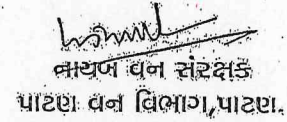 નાયબ વન સંરક્ષક
પાટણ વન વિભાગ,પાટણ.